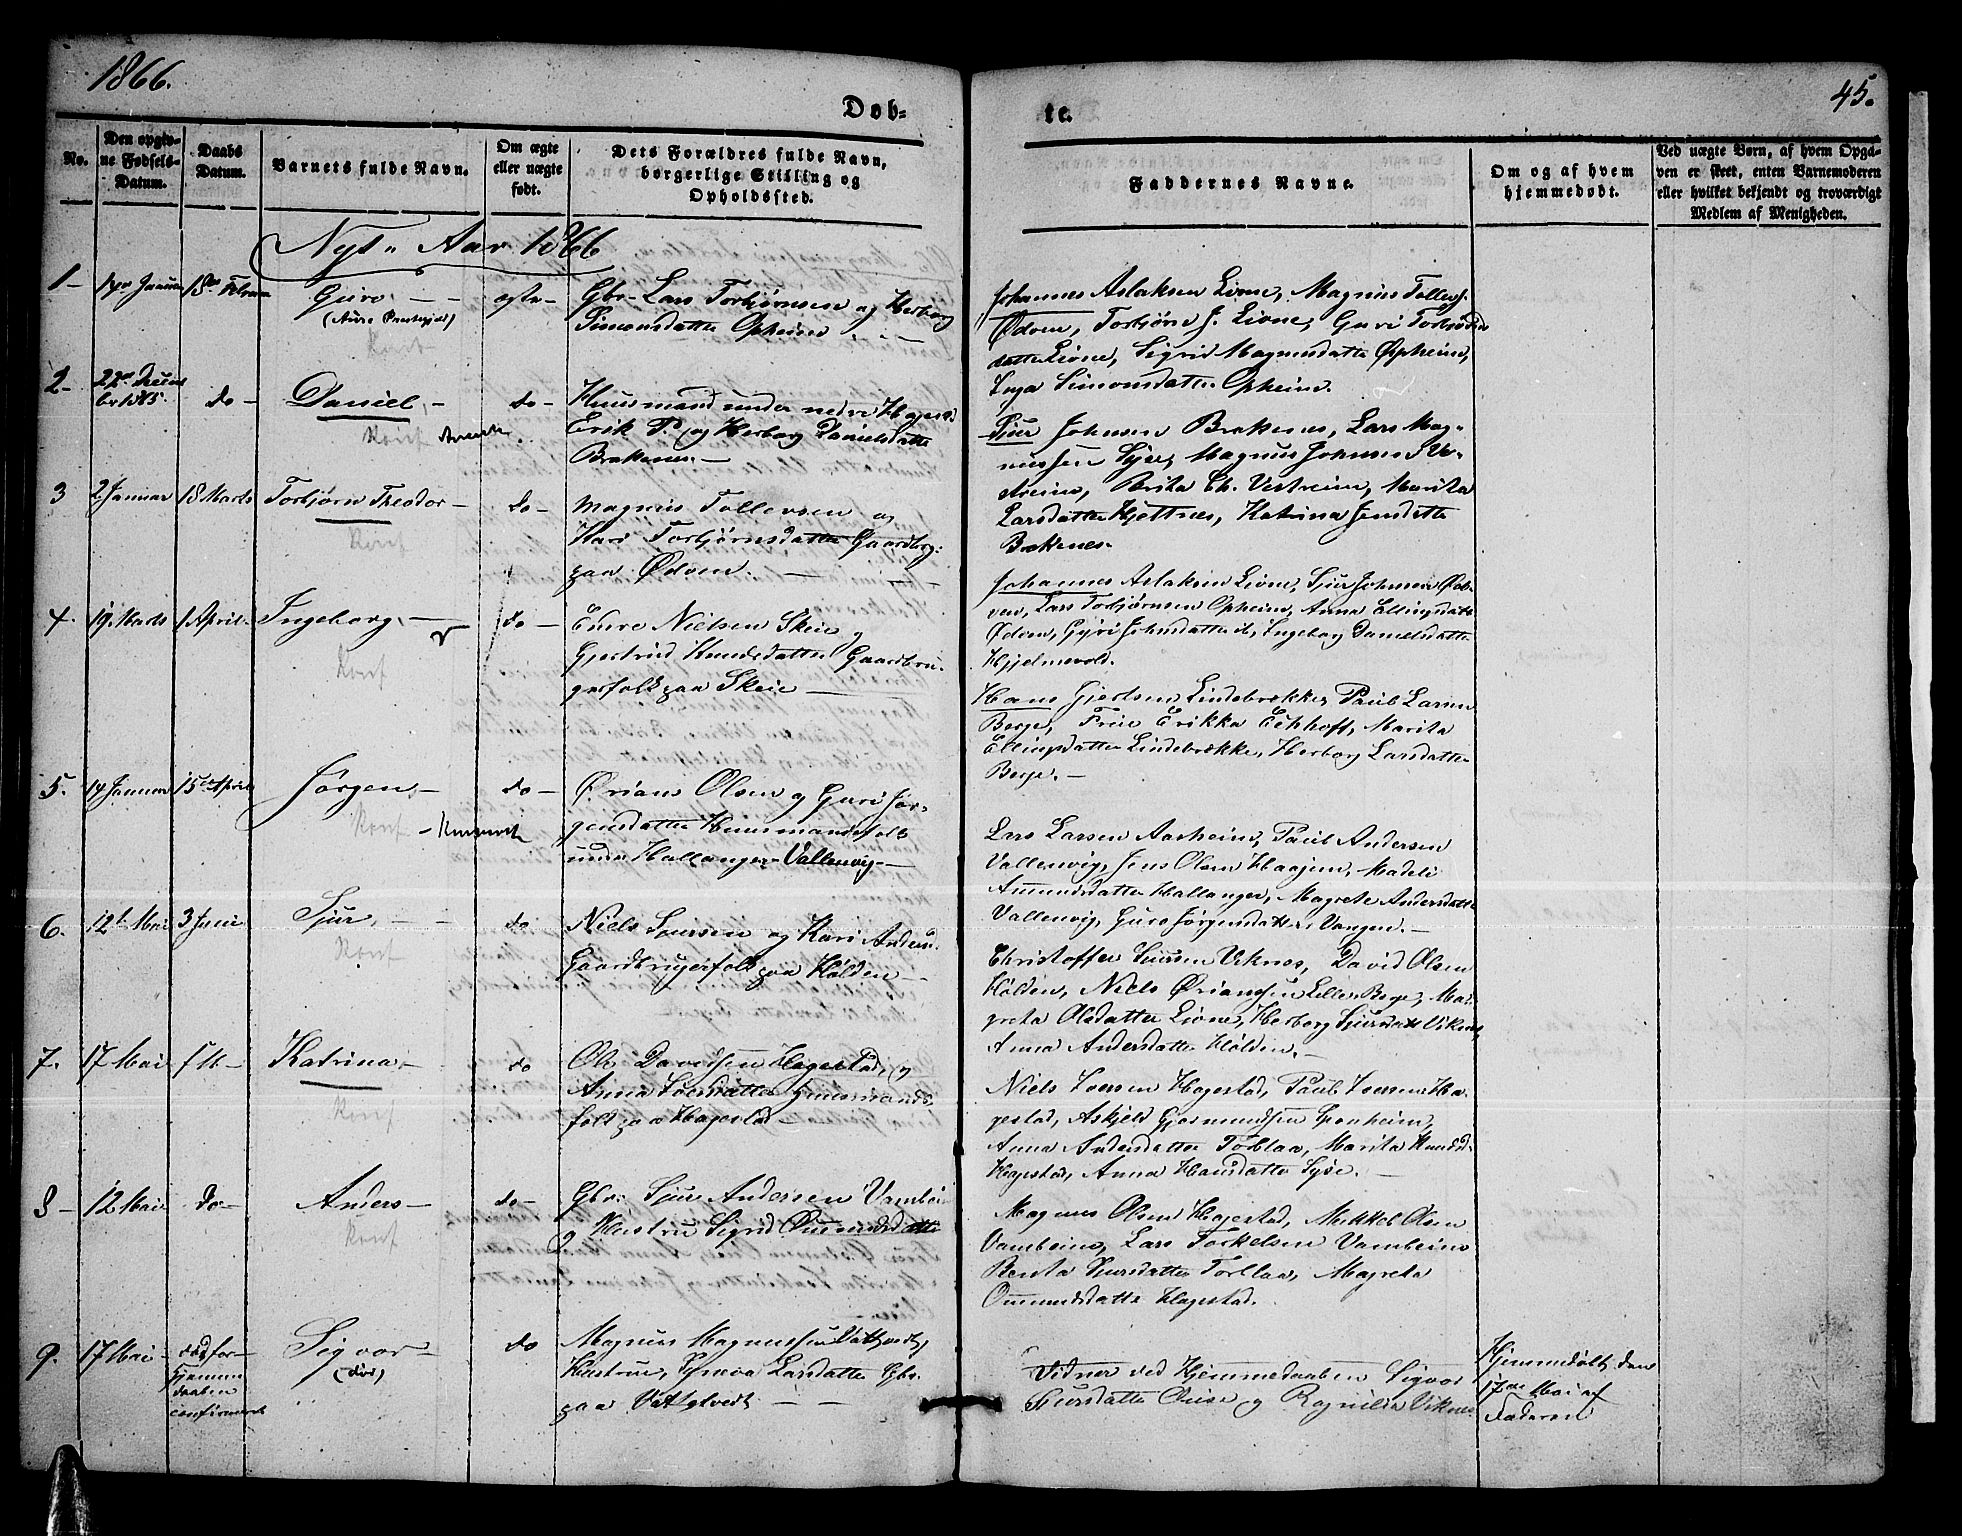 1866.
45.
Døb-
te.
No.
Den opgiv-
ne Fødsels-
Datum.
Daabs
Datum.
Barnets fulde Navn.
Om ægte
eller uægte
født.
Dets Forældres fulde Navn,
borgerlige Stilling og
Opholdssted.
Faddernes Navne.
Om og af hvem
hjemmedøbt.
Ved uægte Børn, af hvem Opga-
ven er skeet, enten Barnemoderen
eller hvilket bekjendt og troværdigt
Medlem af Menigheden.
Nyt Aar 1866
1 -
18de Februar
Guro, - -
Konf
ægte -
Gbr. Lars Torbjørnsen og Herborg
Simonsdatter Opheim
Johannes Aslaksen Lione, Magnus Tollefs.
Ødven, Torbjørn J. Lione, Guri Torbjørns-
datter Lione, Sigrid Magnusdatter Opheim,
Inga Simonsdatter Opheim.
2 -
22de Decem
ber 1865.
do -
Daniel, -
Konf
do -
Huusmand under nedre Hagestd
Erik P. og Herborg Danielsdatter
Brakenes. -
Sjur Johnsen Brakenes, Lars Mag-
nussen Syse, Magnus Johnsen Ve-
streim, Brita Ch. Vestreim, Marita
Larsdatter Hjeltnes, Katrina Jensdatter
Brakenes.
3
2 Januar
18 Marts
Torbjørn Theodor -
Konf
do -
Magnus Tollevsen og
Kari Torbjørnsdatter Gaardbrg.
paa Ødven. -
Johannes Aslaksen Lione, Sjur Johnsen Ød-
ven, Lars Torbjørnsen Opheim, Anna Ellingsdatt
Ødven, Gyri Johnsdatter ib, Ingeborg Danielsdatter
Hjelmevold.
4.
19 Marts
1 April.
Ingeborg, -
Konf
do -
Nielsen Skeie og
Gjertrud Knudsdatter Gaardbru-
gerfolk paa Skeie -
Hans Gjertsen Lindebrække, Paul Larsen
Berge, Frue Erikka Eckhoff, Marita
Ellingsdatter Lindebrække, Herborg Larsdatter
Berge. -
5.
14 Januar
15de April
Jørgen, -
Konf
do -
Ørians Olsen og Guri Jør-
gensdatter Huusmandsfolk
under Hallanger - Vallenvig -
Lars Larsen Aarheim, Paul Andersen
Vallenvig, Jens Olsen Haajem, Madeli
Amundsdatter Hallanger, Magrete Andersdatter
Vallenvig, Guro Jørgensdatter Vangen. -
6.
12te Mai
3 Juni
Sjur, - -
Konf
do
Niels Sjursen og Kari Anders.
Gaardbrugerfolk paa Hølden -
Christoffer Sjursen Viknes, David Olsen
Hølden, Niels Øriansen Lille Berge, Ma-
greta Olsdatter Lione, Herborg Sjursdatt Viknes,
Anna Andersdatter Hølden. -
7.
17 Mai
Katrina, -
Konf
do
Ole Davidsen Hagestad, og
Anna Iversdatter Huusmands-
folk paa Hagestad -
Niels Iversen Hagestad, Paul Iversen Ha-
gestad, Askjeld Gjermundsen Sponheim,
Anna Andersdatter Torblaa, Marita Knudsd.
Hagestad, Anna Hansdatter Syse. -
8 -
12 Mai
do -
Anders -
Konf
do -
Gbr. Sjur Andersen Vambeim
og Hustru Sigrid Omundsdatter
Magnus Olsen Hagestad, Mikkel Olsen
Vambeim, Lars Torkelsen Vambeim
Brita Sjursdatter Torblaa, Magreta
Omundsdatter Hagestad.
9.
17 Mai -
død før-
hjemme
daaben
confirmeret
Sigvor -
(død)
do
Magnus Magnussen Vattvedt,
Hustrue, Syneva Larsdatter Gbr.
paa Vattetvedt - -
Vidner ved Hjemmedaaben Sigvor
Sjursdatter og Ragnilda Viknes
Hjemmedøbt den
17de Mai af
Faderen